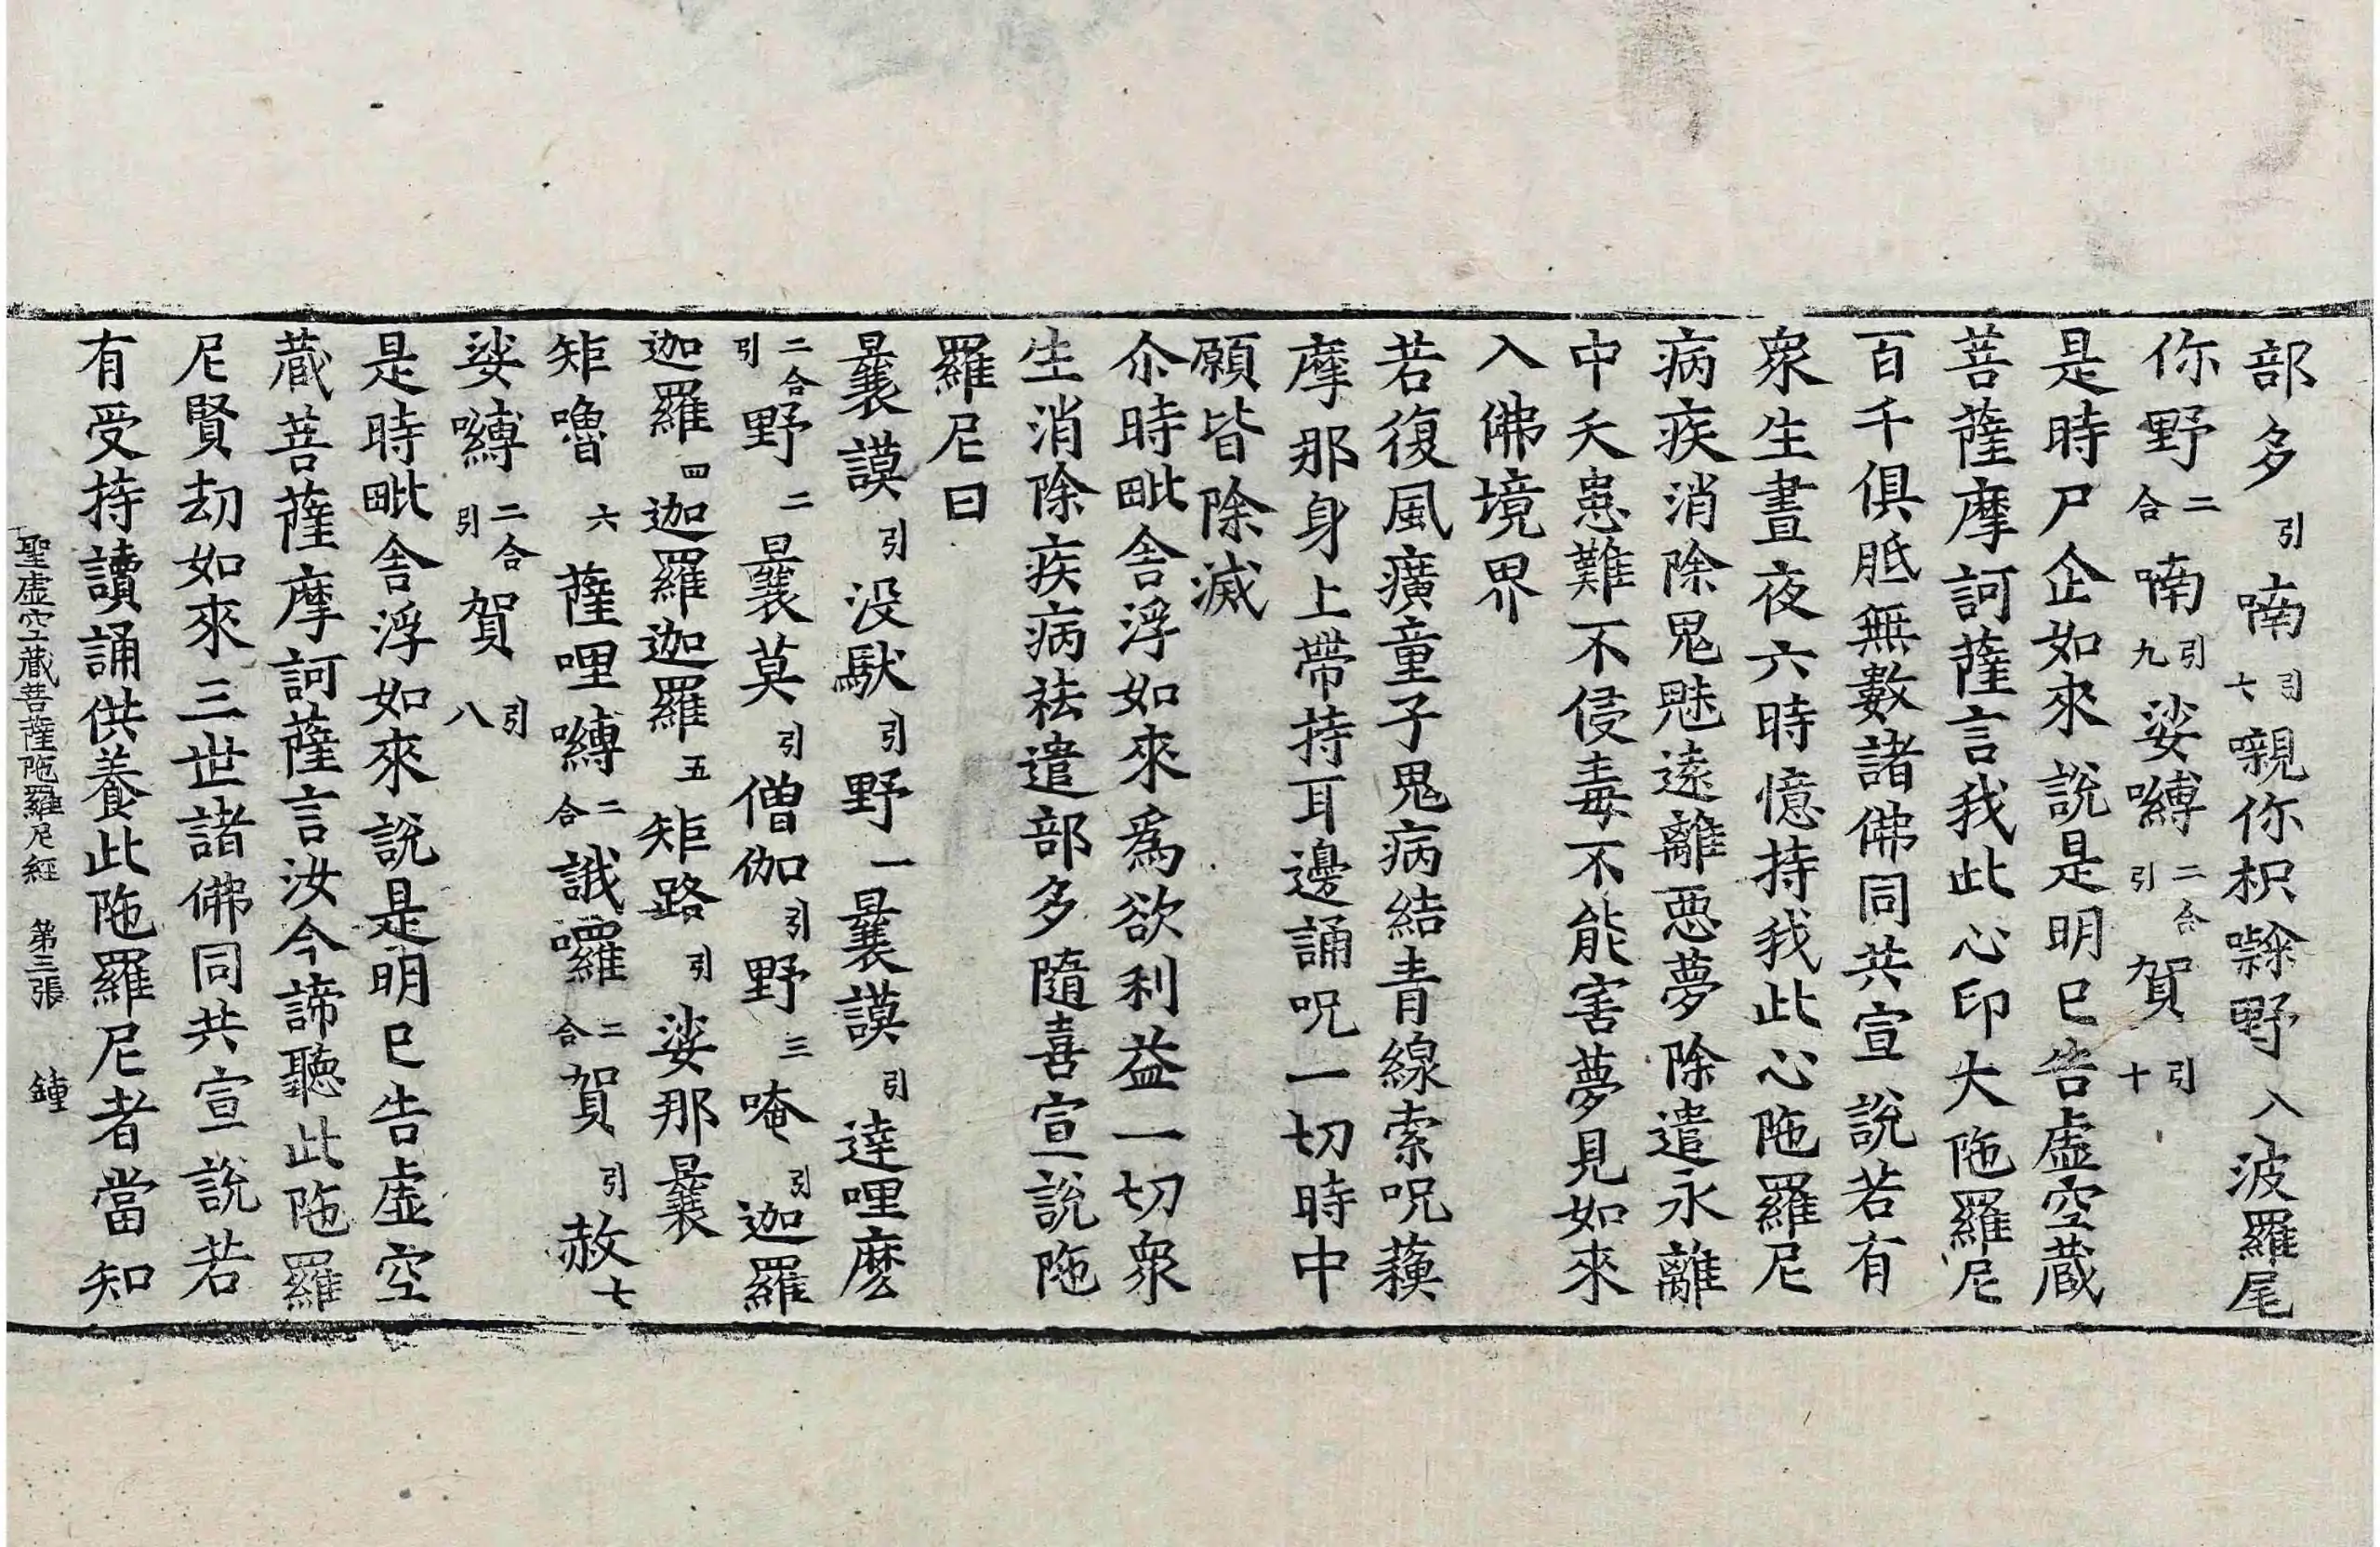 部多引喃引七嚫你枳㗚野八波羅尾
你野二合喃引九娑嚩二合引賀引十
是時尸企如來說是明巳告虛空藏
菩薩摩訶薩言我此心印大陁羅尼
百千俱胝無數諸佛同共宣說若有
衆生晝夜六時憶持我此心陁羅尼
病疾消除鬼魅遠離惡夢除遣永離
中夭患難不侵毒不能害夢見如來
入佛境界
若復風癀童子鬼病結青線索呪蘱
摩那身上帶持耳邊誦呪一切時中
願皆除滅
尒時毗舍浮如來爲欲利益一切衆
生消除疾病祛遣部多隨喜宣說陁
羅尼曰
曩謨引没馱引野一曩謨引達哩麽
二合引野二曩莫引僧伽引野三唵引迦羅
迦羅四迦羅迦羅五矩路引娑那曩
矩嚕六薩哩嚩二合誐囉二合賀引赦七
娑嚩二合引賀引八
是時毗舍浮如來說是明巳告虛空
藏菩薩摩訶薩言汝今諦聽此陁羅
尼賢刼如來三世諸佛同共宣說若
有受持讀誦供養此陁羅尼者當知
聖虛空藏菩薩陁羅尼經 第三張 鍾